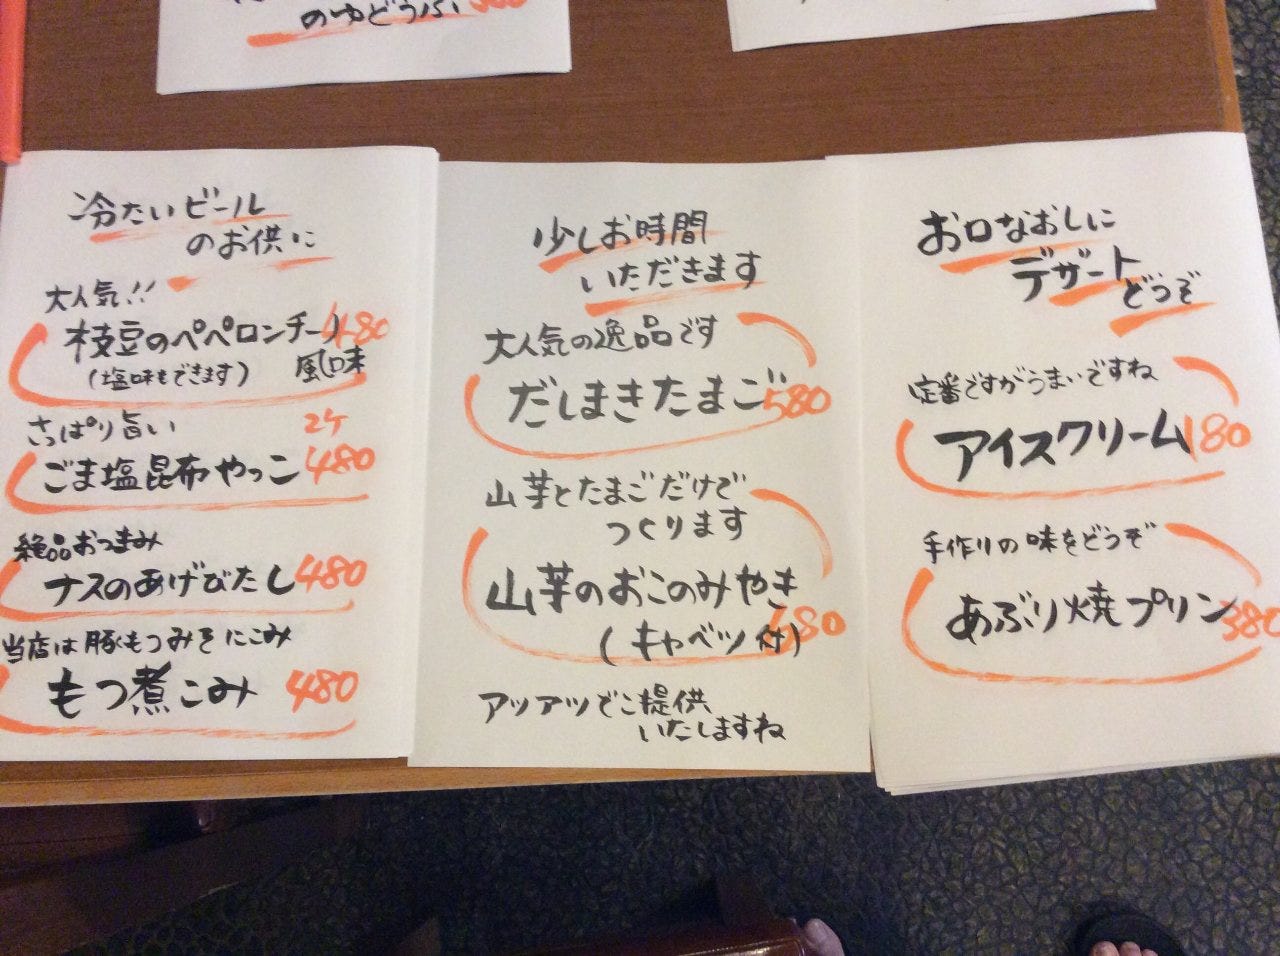 のゆどうふ
冷たいビール
のお供に
大人気!!
枝豆のペペロンチーノ 480
(塩味もできます) 風味
さっぱり旨い 2ケ
ごま塩昆布やっこ 480
絶品おつまみ
ナスのあげびたし 480
当店は豚もつみそにこみ
もつ煮こみ 480
少しお時間
いただきます
大人気の逸品です
だしまきたまご 580
山芋とたまごだけで
つくります
山芋のおこのみやき
(キャベツ付) 680
アツアツでご提供
いたしますね
お口なおしに
デザート
どうぞ
定番ですがうまいですね
アイスクリーム 180
手作りの味をどうぞ
あぶり焼プリン 380